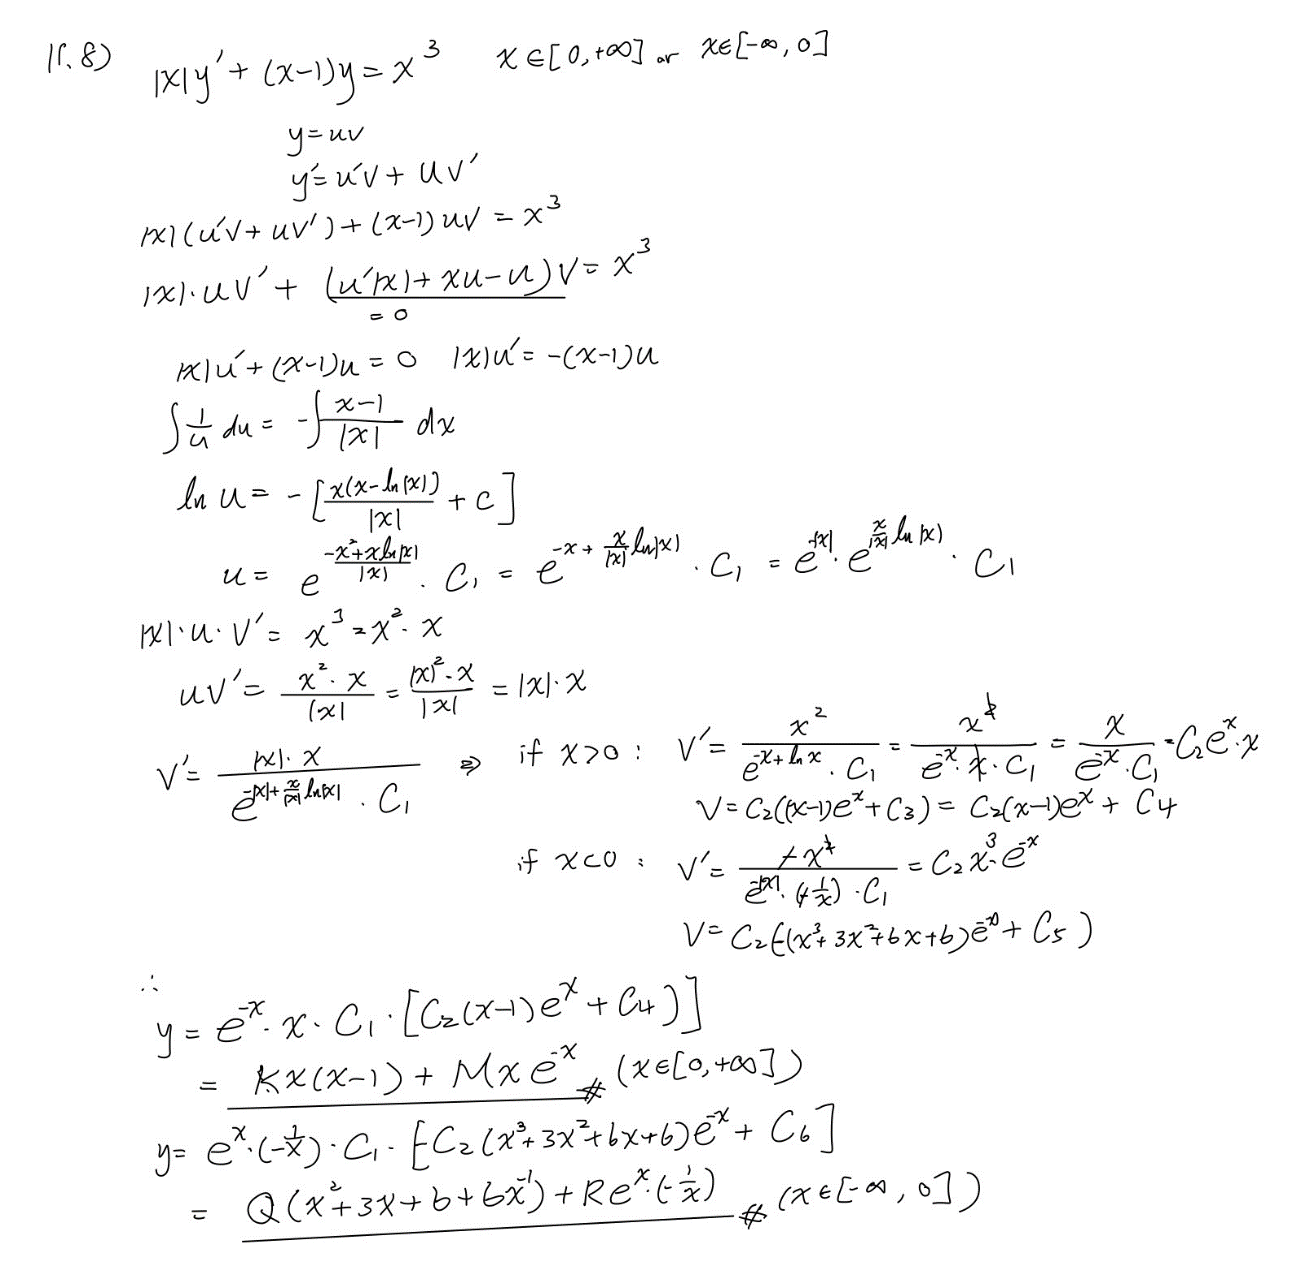 11.8) |x|y' + (x-1)y = x^3 x∈[0,+∞] or x∈[-∞,0]
y=uv
y'=u'v+uv'
|x|(u'v+uv')+(x-1)uv = x^3
|x|·uv' + (u'|x|+xu-u)v = x^3
=0
|x|u'+(x-1)u=0 |x|u'=-(x-1)u
∫ 1/u du = -∫ (x-1)/|x| dx
ln u = -[ x(x-ln|x|)/|x| + c ]
u = e^((-x^2+xln|x|)/|x|) · C1 = e^(-x + x/|x| ln|x|) · C1 = e^(-|x|) · e^(x/|x| ln|x|) · C1
|x|·u·v' = x^3 = x^2·x
uv' = x^2·x/|x| = |x|^2·x/|x| = |x|·x
v' = |x|·x / (e^(-|x|+x/|x| ln|x|) · C1) ⇒ if x>0 : v' = x^2/(e^(-x+ln x)·C1) = x^2/(e^-x·x·C1) = x/(e^-x·C1) = C2e^x·x
v = C2((x-1)e^x+C3) = C2(x-1)e^x + C4
if x<0 : v' = -x^2/(e^-|x|·(-1/x)·C1) = C2x^3·e^-x
v = C2(-(x^3+3x^2+6x+6)e^-x + C5)
∴
y = e^-x·x·C1·[C2(x-1)e^x+C4)]
= Kx(x-1) + Mxe^-x # (x∈[0,+∞])
y = e^x·(-1/x)·C1·[C2(x^3+3x^2+6x+6)e^-x + C6]
= Q(x^2+3x+6+6x^-1) + Re^x·(-1/x) # (x∈[-∞,0])